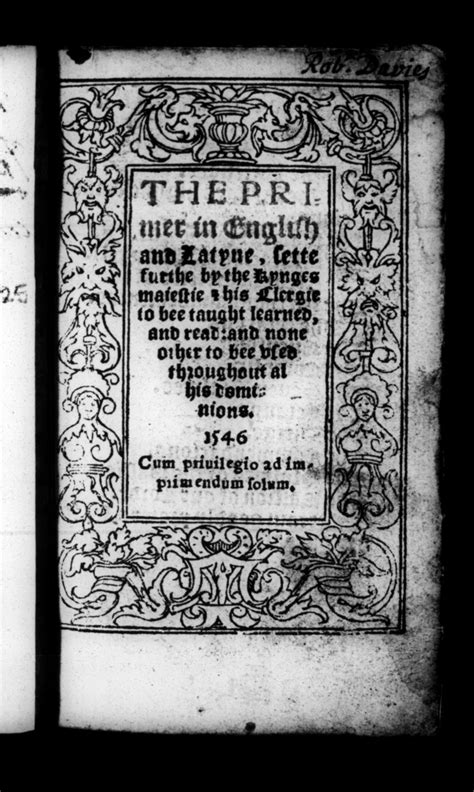 Rob. Davies
25
THE PRI-
mer in English
and Latyne, sette
furthe by the Kynges
maiestie & his Clergie
to bee taught learned,
and read: and none
other to bee vsed
throughout al
his domi-
nions.
1546
Cum priuilegio ad im-
primendum solum.